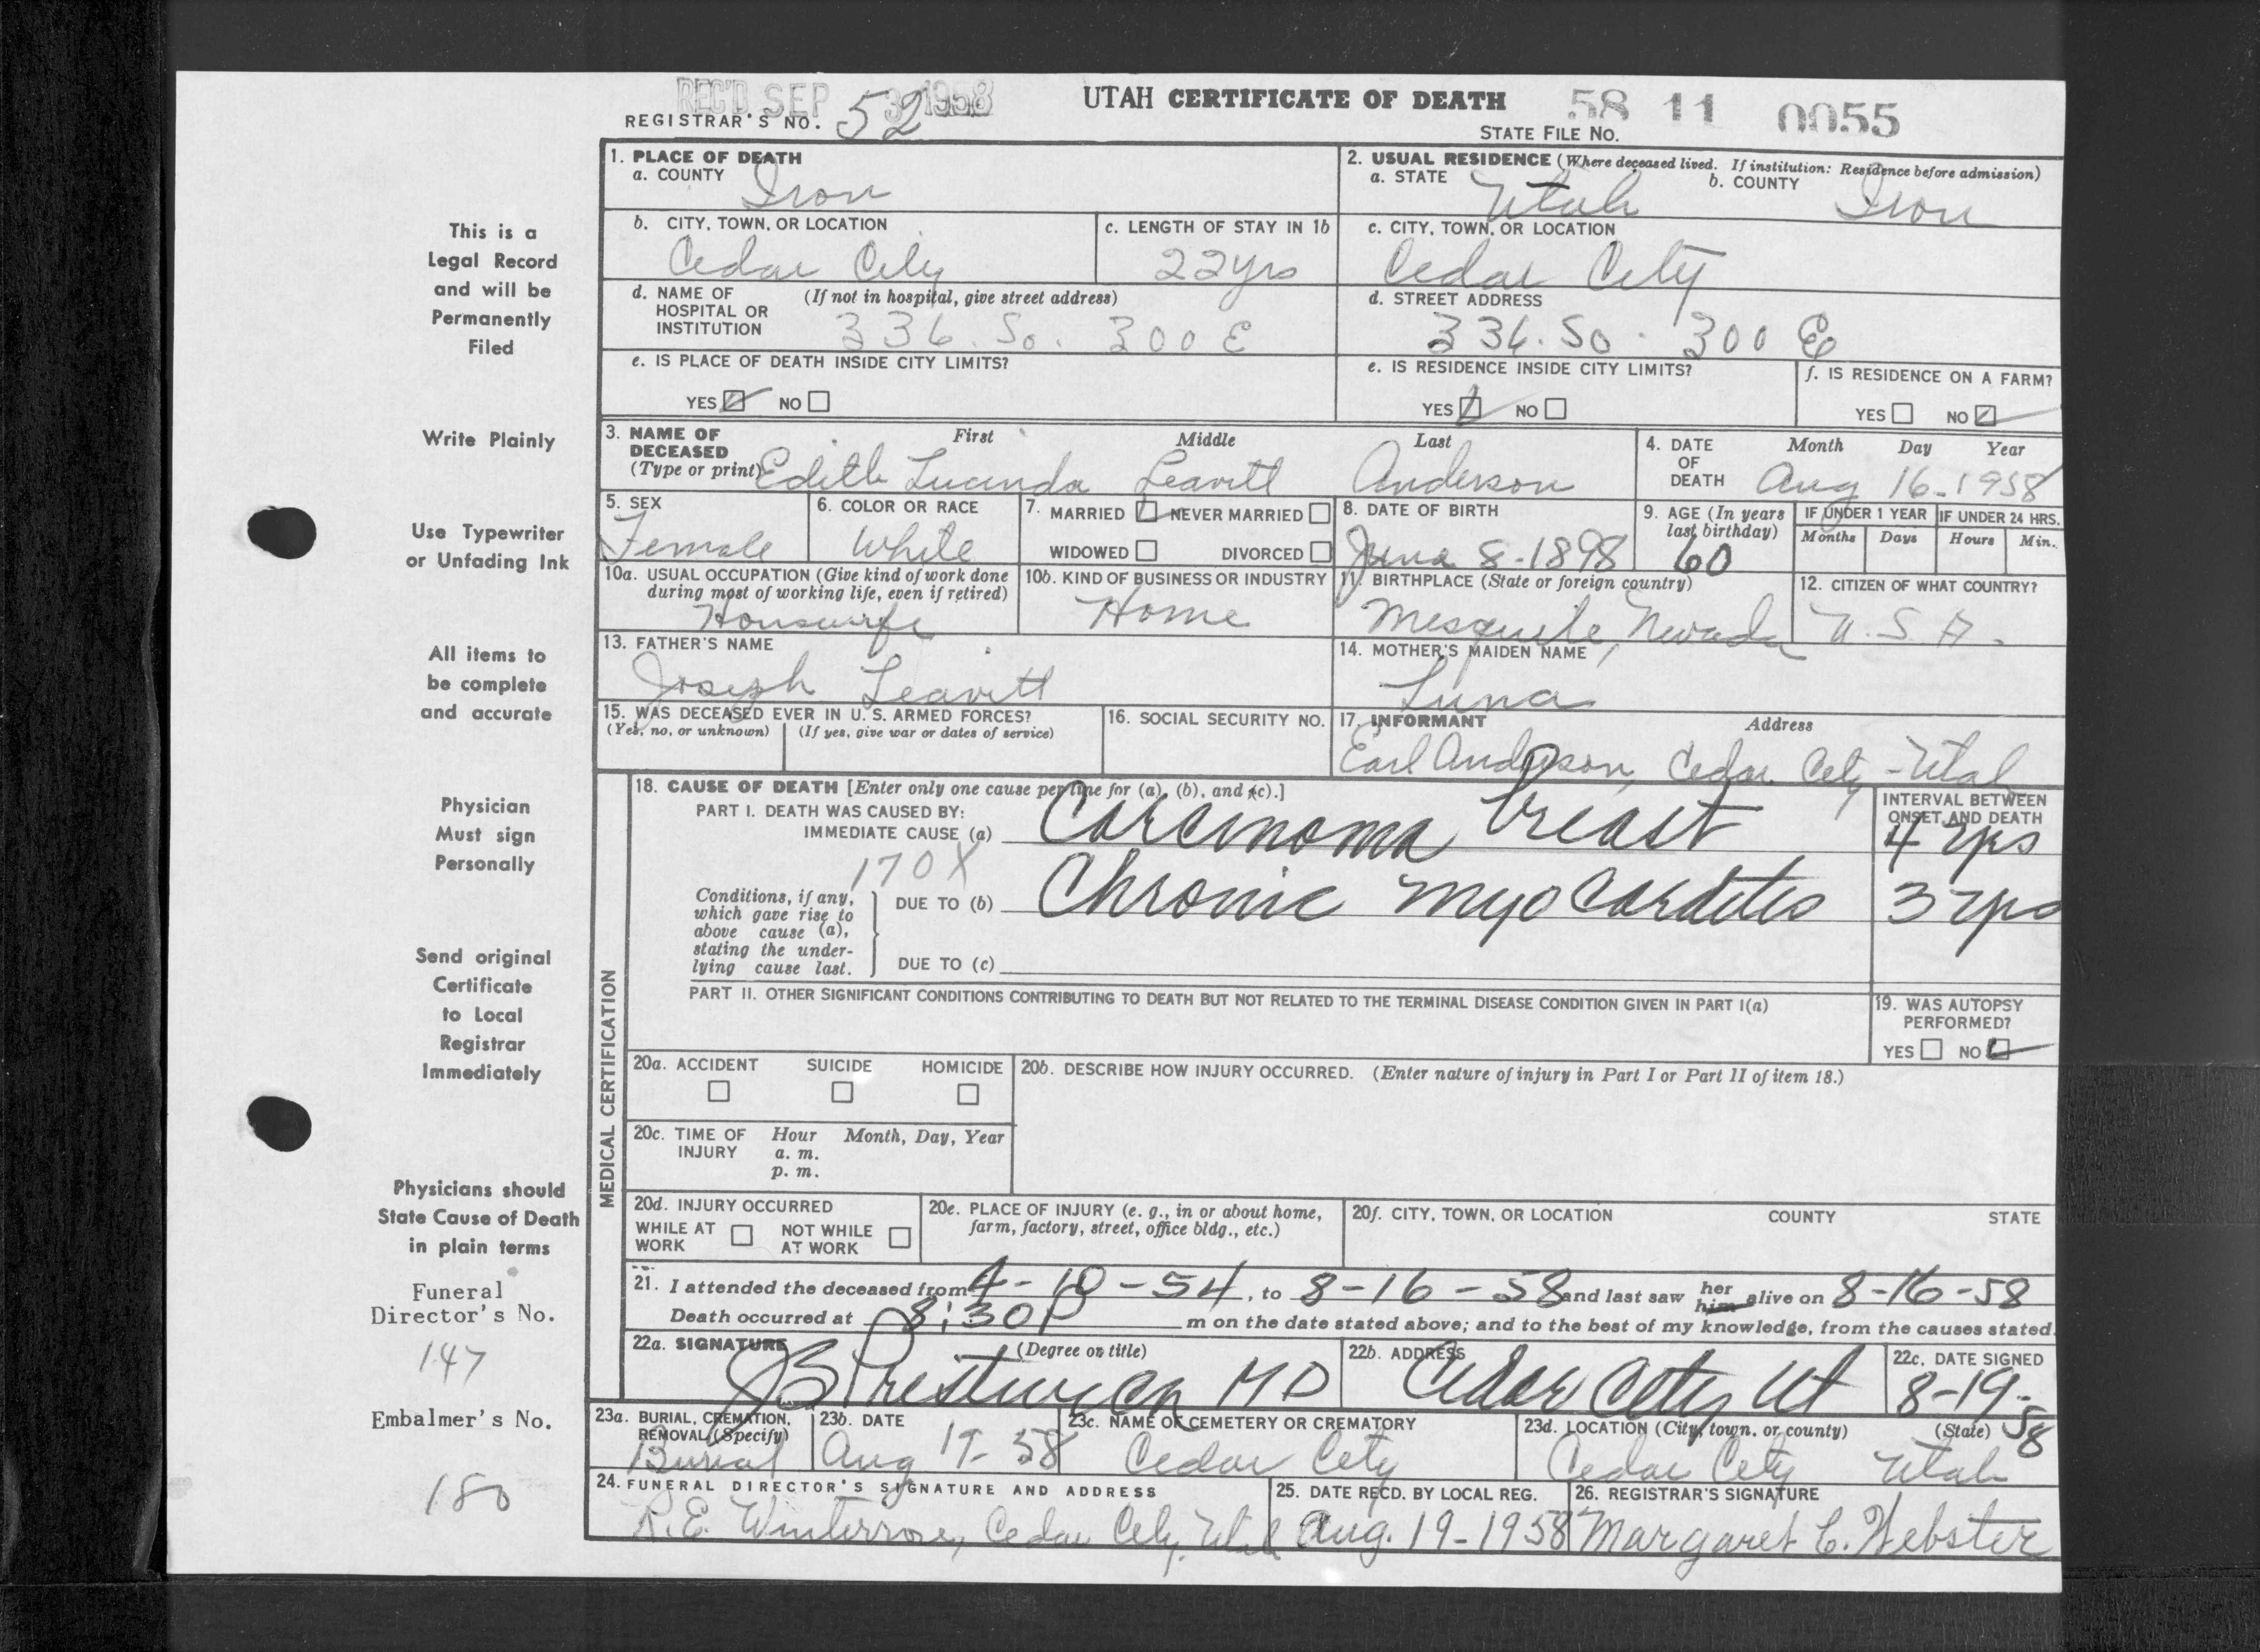 REC'D SEP 3 1958
UTAH CERTIFICATE OF DEATH
58 11 0055
REGISTRAR'S NO. 52
STATE FILE NO.
1. PLACE OF DEATH
a. COUNTY Iron
2. USUAL RESIDENCE (Where deceased lived. If institution: Residence before admission)
a. STATE Utah b. COUNTY Iron
b. CITY, TOWN, OR LOCATION Cedar City
c. LENGTH OF STAY IN 1b 22 yrs
c. CITY, TOWN, OR LOCATION Cedar City
d. NAME OF HOSPITAL OR INSTITUTION (If not in hospital, give street address) 336. So. 300 E
d. STREET ADDRESS 336. So. 300 E
e. IS PLACE OF DEATH INSIDE CITY LIMITS?
YES NO
e. IS RESIDENCE INSIDE CITY LIMITS?
YES NO
f. IS RESIDENCE ON A FARM?
YES NO
3. NAME OF DECEASED (Type or print) First Middle Last
Edith Lucinda Leavitt Anderson
4. DATE OF DEATH Month Day Year
Aug 16-1958
5. SEX Female
6. COLOR OR RACE White
7. MARRIED NEVER MARRIED
WIDOWED DIVORCED
8. DATE OF BIRTH June 8-1898
9. AGE (In years last birthday) 60
IF UNDER 1 YEAR Months Days
IF UNDER 24 HRS. Hours Min.
10a. USUAL OCCUPATION (Give kind of work done during most of working life, even if retired)
Houswife
10b. KIND OF BUSINESS OR INDUSTRY
Home
11. BIRTHPLACE (State or foreign country)
Mesquite, Nevada
12. CITIZEN OF WHAT COUNTRY?
U.S.A.
13. FATHER'S NAME
Joseph Leavitt
14. MOTHER'S MAIDEN NAME
Luna
15. WAS DECEASED EVER IN U. S. ARMED FORCES?
(Yes, no, or unknown) (If yes, give war or dates of service)
16. SOCIAL SECURITY NO.
17. INFORMANT Address
Earl Anderson, Cedar City - Utah
18. CAUSE OF DEATH [Enter only one cause per line for (a), (b), and (c).]
PART I. DEATH WAS CAUSED BY:
IMMEDIATE CAUSE (a) Carcinoma breast
INTERVAL BETWEEN ONSET AND DEATH
4 yrs
170X
Conditions, if any, which gave rise to above cause (a), stating the underlying cause last.
DUE TO (b) Chronic myocarditis 3 yrs
DUE TO (c)
PART II. OTHER SIGNIFICANT CONDITIONS CONTRIBUTING TO DEATH BUT NOT RELATED TO THE TERMINAL DISEASE CONDITION GIVEN IN PART I(a)
19. WAS AUTOPSY PERFORMED?
YES NO
MEDICAL CERTIFICATION
20a. ACCIDENT SUICIDE HOMICIDE
20b. DESCRIBE HOW INJURY OCCURRED. (Enter nature of injury in Part I or Part II of item 18.)
20c. TIME OF INJURY Hour Month, Day, Year
a. m.
p. m.
20d. INJURY OCCURRED
WHILE AT WORK NOT WHILE AT WORK
20e. PLACE OF INJURY (e. g., in or about home, farm, factory, street, office bldg., etc.)
20f. CITY, TOWN, OR LOCATION COUNTY STATE
21. I attended the deceased from 4-10-54, to 8-16-58 and last saw her him alive on 8-16-58
Death occurred at 8:30 P m on the date stated above; and to the best of my knowledge, from the causes stated.
22a. SIGNATURE (Degree or title)
JB Prestwich MD
22b. ADDRESS
Cedar City Ut
22c. DATE SIGNED
8-19-58
23a. BURIAL, CREMATION, REMOVAL (Specify)
Burial
23b. DATE
Aug 19-58
23c. NAME OF CEMETERY OR CREMATORY
Cedar City
23d. LOCATION (City, town, or county) (State)
Cedar City Utah
24. FUNERAL DIRECTOR'S SIGNATURE AND ADDRESS
R.E. Winterrose, Cedar City, Utah
25. DATE RECD. BY LOCAL REG.
Aug. 19-1958
26. REGISTRAR'S SIGNATURE
Margaret C. Webster
This is a
Legal Record
and will be
Permanently
Filed
Write Plainly
Use Typewriter
or Unfading Ink
All items to
be complete
and accurate
Physician
Must sign
Personally
Send original
Certificate
to Local
Registrar
Immediately
Physicians should
State Cause of Death
in plain terms
Funeral
Director's No.
147
Embalmer's No.
180